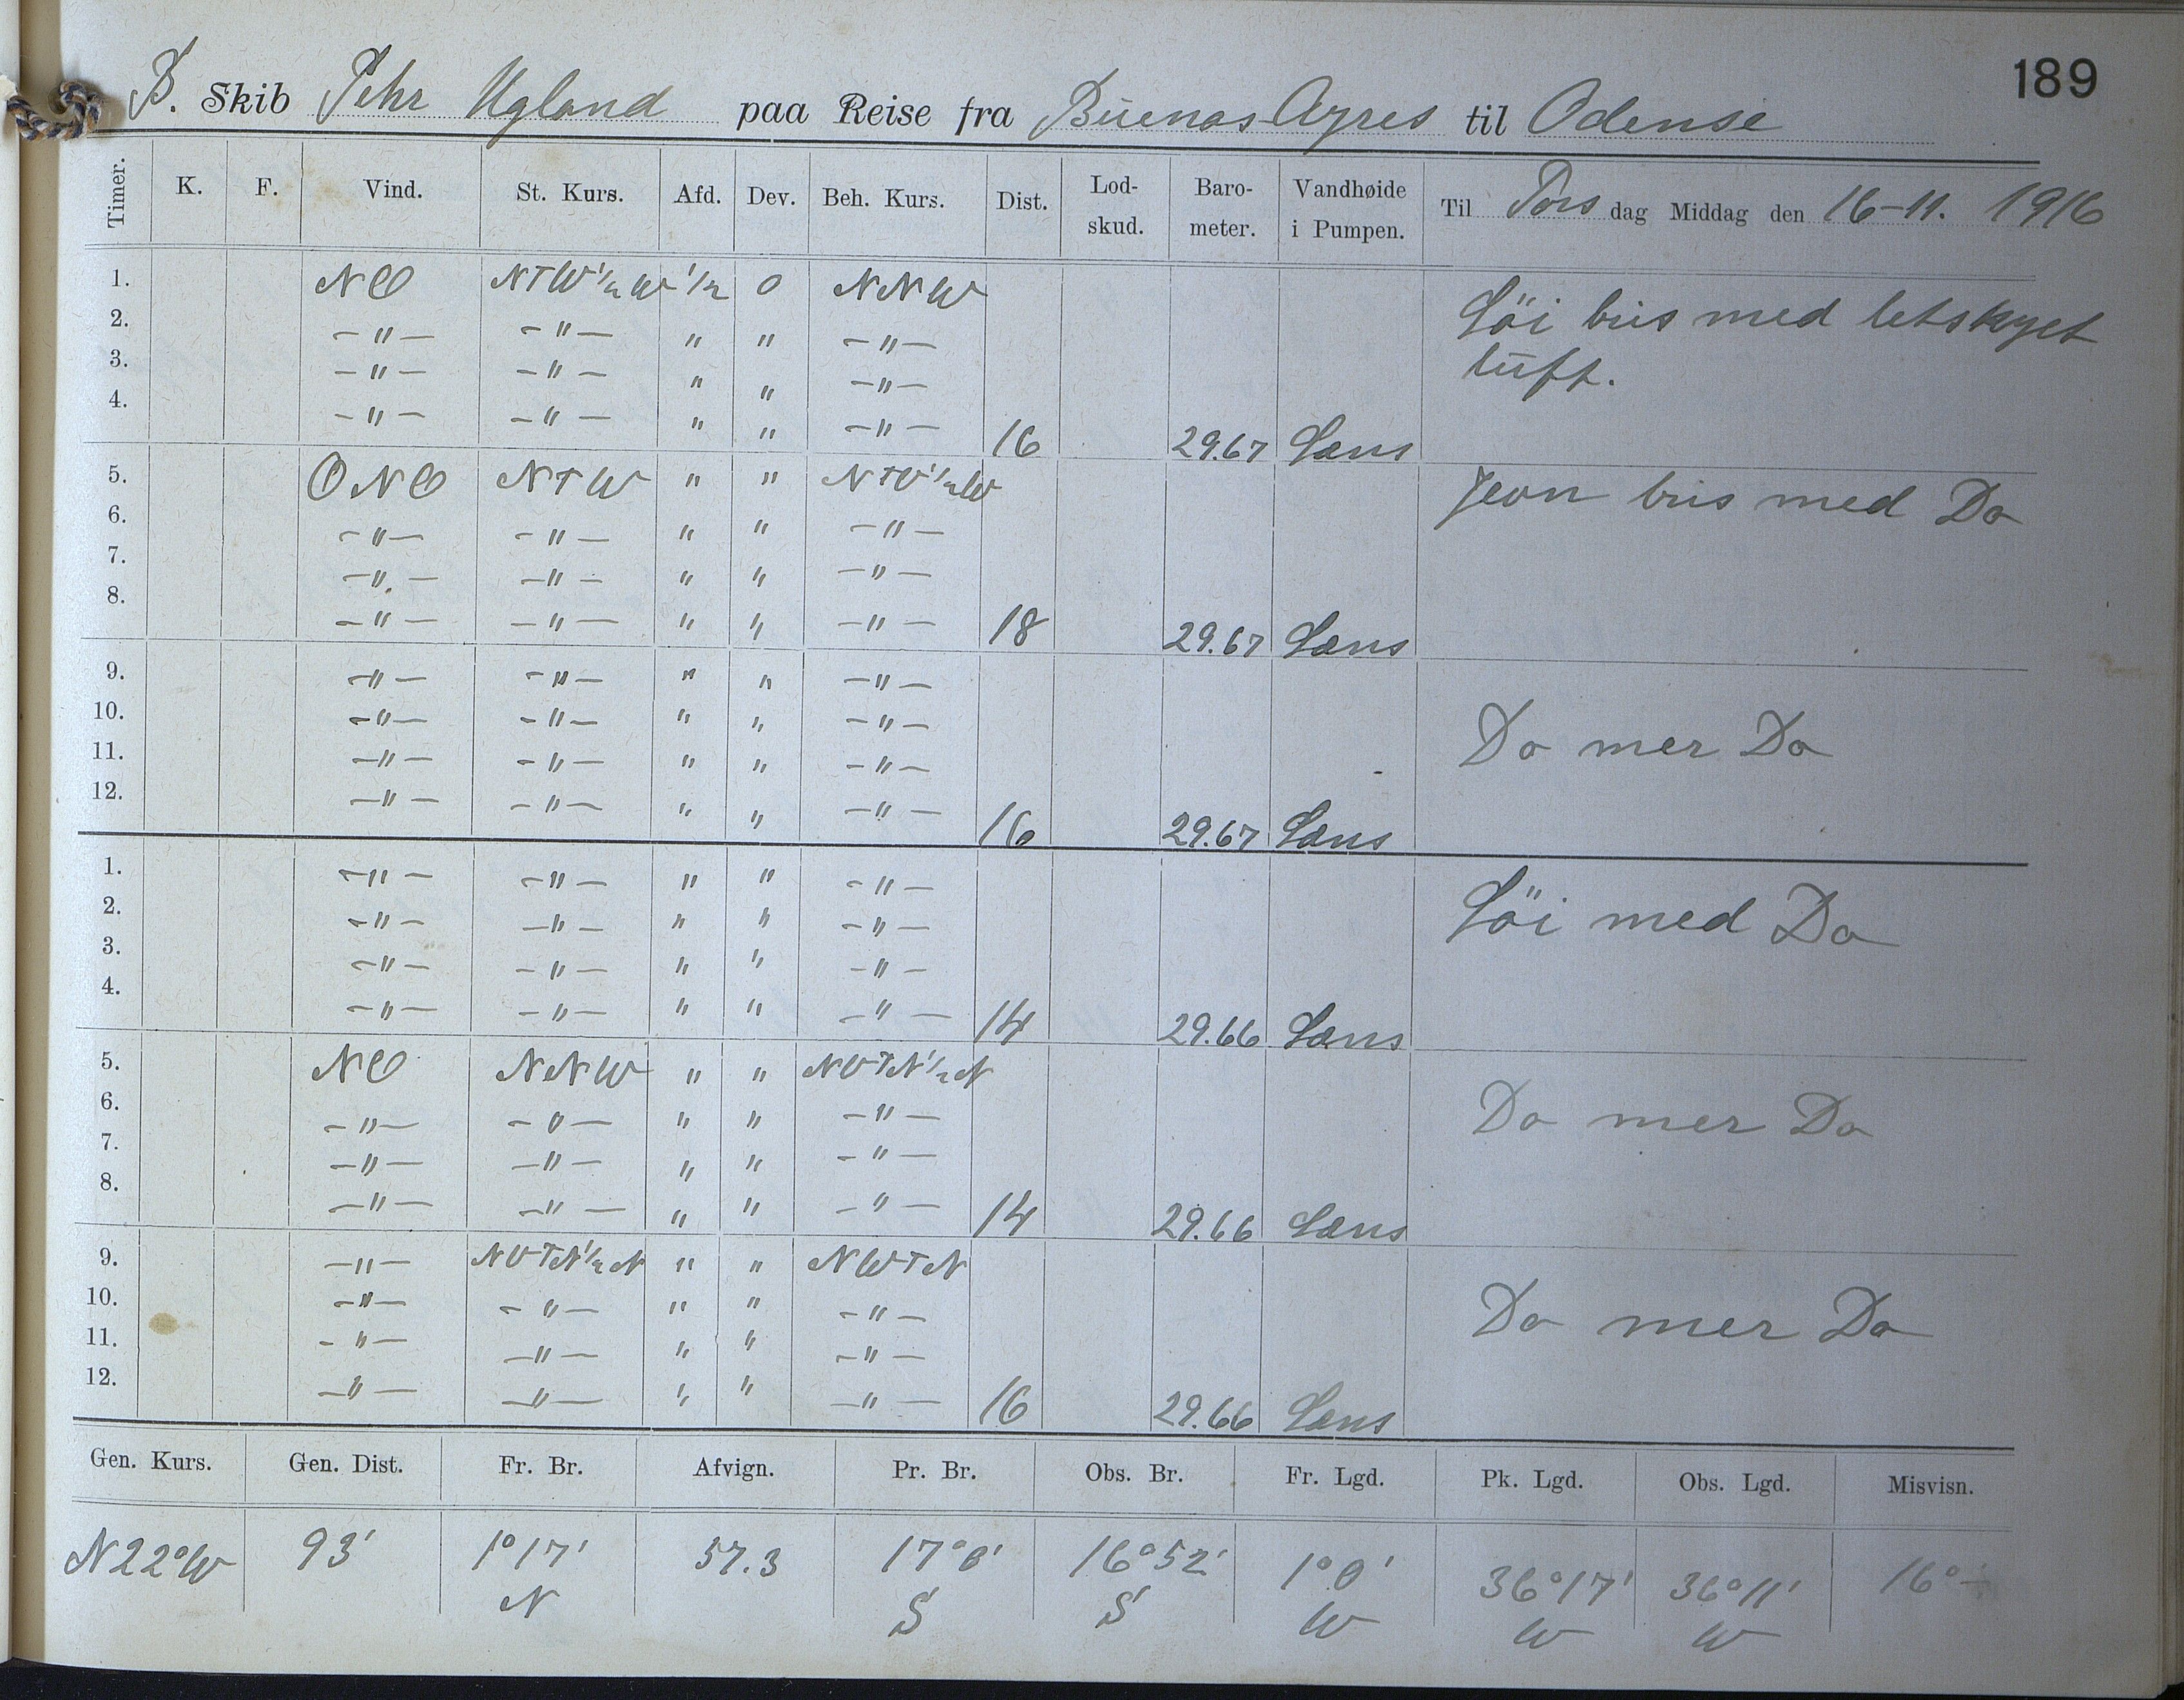 189
B. Skib Pehr Ugland paa Reise fra Buenas Ayres til Odense
Timer. K. F. Vind. St. Kurs. Afd. Dev. Beh. Kurs. Dist. Lod-skud. Baro-meter. Vandhøide i Pumpen. Til Tors dag Middag den 16-11. 1916
1. NO NTW½W ½ 0 NNW Löi bris med letskyet
2. -"- -"- " " -"- luft.
3. -"- -"- " " -"-
4. -"- -"- " " -"- 16 29.67 Læns
5. ONO NTW " " NTW½W Jevn bris med Do
6. -"- -"- " " -"-
7. -"- -"- " " -"-
8. -"- -"- " " -"- 18 29.67 Læns
9. -"- -"- " " -"-
10. -"- -"- " " -"- Do mer Do
11. -"- -"- " " -"-
12. -"- -"- " " -"- 16 29.67 Læns
1. -"- -"- " " -"- Löi med Do
2. -"- -"- " " -"-
3. -"- -"- " " -"-
4. -"- -"- " " -"- 14 29.66 Læns
5. NO NNW " " NWTN½N
6. -"- -"- " " -"- Do mer Do
7. -"- -"- " " -"-
8. -"- -"- " " -"- 14 29.66 Læns
9. -"- NWTN½N " " NWTN
10. -"- -"- " " -"- Do mer Do
11. -"- -"- " " -"-
12. -"- -"- " " -"- 16 29.66 Læns
Gen. Kurs. Gen. Dist. Fr. Br. Afvign. Pr. Br. Obs. Br. Fr. Lgd. Pk. Lgd. Obs. Lgd. Misvisn.
N22°W 93' 1°17' 57.3 17°0' 16°52' 1°0' 36°17' 36°11' 16°-
N S S W W W